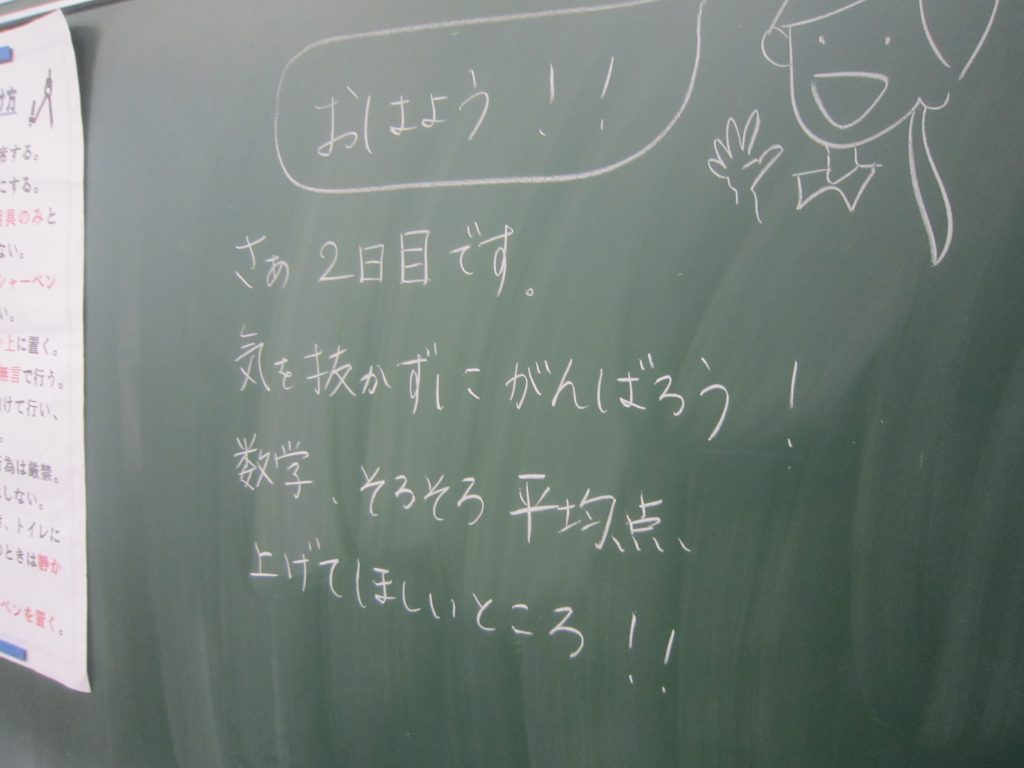 おはよう!!
さぁ 2日目です。
気を抜かずに がんばろう!
数学、そろそろ 平均点、
上げてほしいところ!!
する。
にする。
具のみと
ない。
シャーペン
い。
上に置く。
無言で行う。
けて行い、
行為は厳禁。
しない。
、トイレに
のときは静か
ペンを置く。